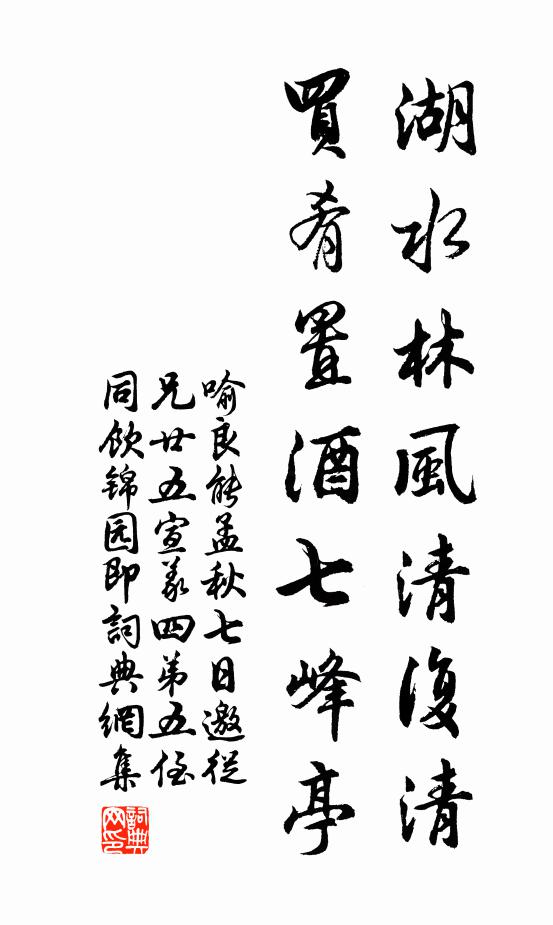 湖水林風清復清
買肴置酒七峰亭
喻良能孟秋七日邀從
兄廿五宣義四弟五侄
同飲錦园即詞典網集
詞典网印